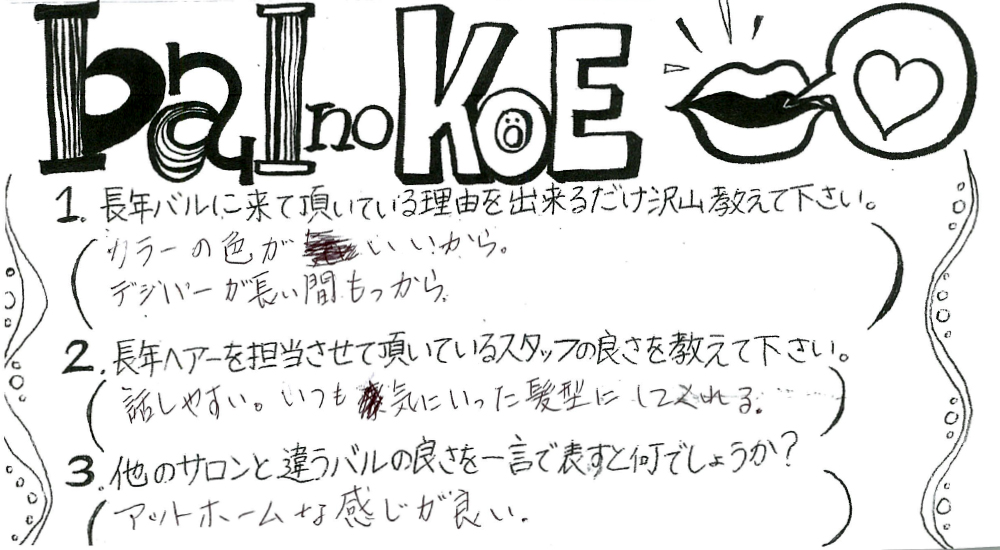 bal no KOE
1. 長年バルに来て頂いている理由を出来るだけ沢山教えて下さい。
カラーの色がいいから。
デジパーが長い間もつから。
2. 長年ヘアーを担当させて頂いているスタッフの良さを教えて下さい。
話しやすい。いつも気にいった髪型にしてくれる。
3. 他のサロンと違うバルの良さを一言で表すと何でしょうか？
アットホームな感じが良い。